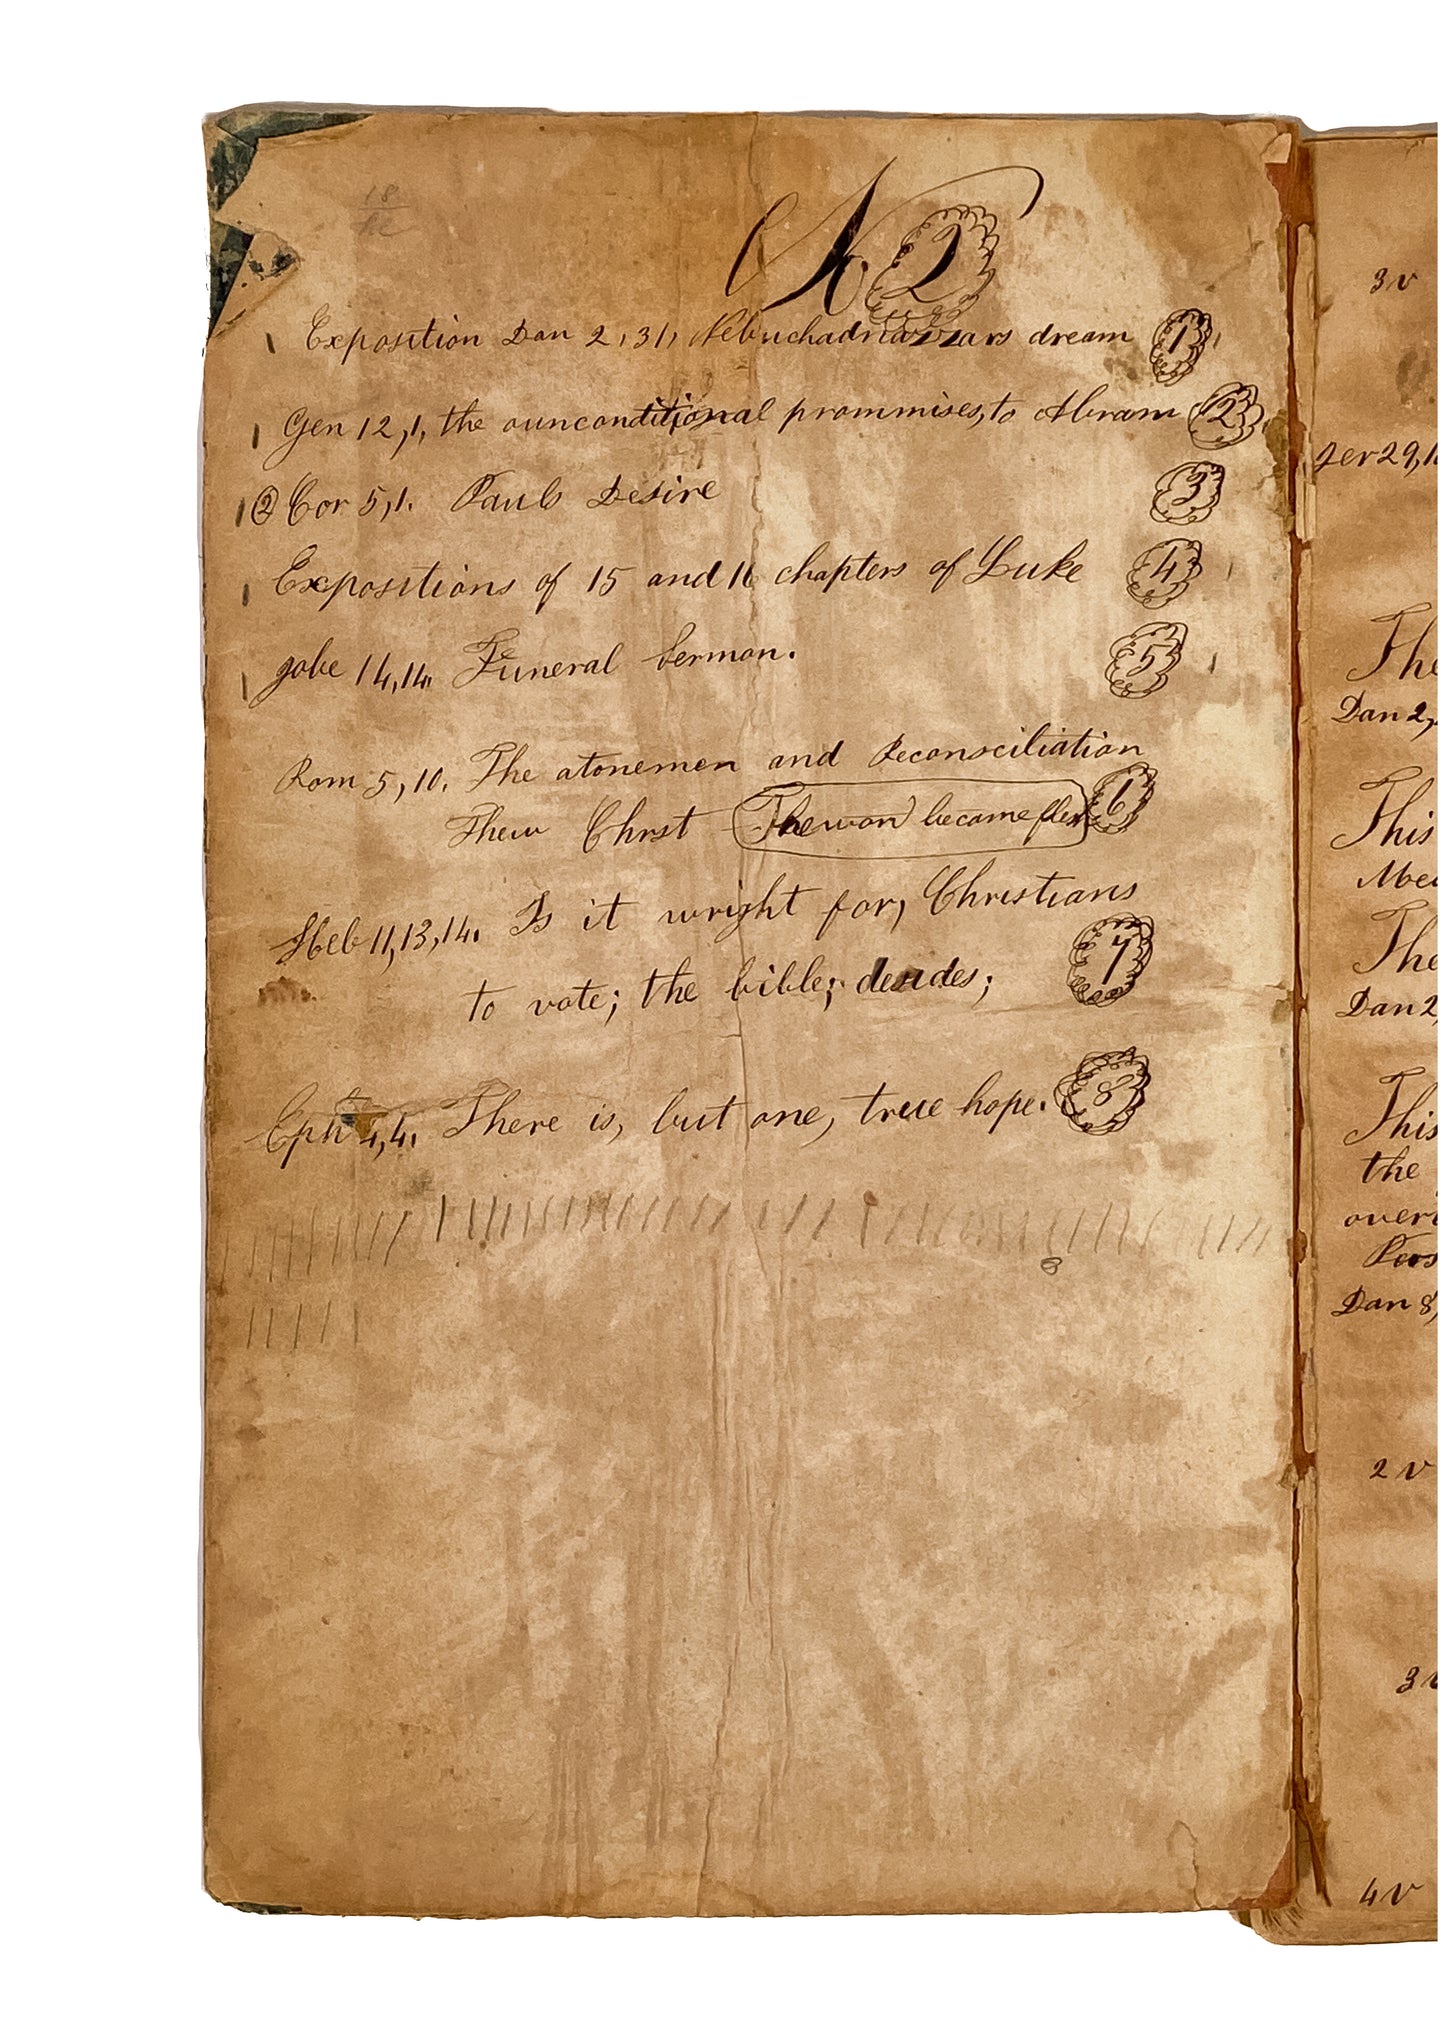 N. 2
Exposition Dan 2, 31, Nebuchadnazzars dream 1
Gen 12, 1, the ounconditional prommises, to Abram 2
2 Cor 5, 1. Pauls Desire 3
Expositions of 15 and 16 chapters of Luke 4
Jobe 14, 14. Funeral Sermon. 5
Rom 5, 10. The atonemen and Reconsciliation
Threw Chrst The word became flesh 6
Heb 11, 13, 14. Is it wright for, Christians
to vote; the bible; decides; 7
Eph 4, 4. There is, but one, true hope. 8
8
3v
Jer 29, 1
The
Dan 2,
This
The
Dan 2,
This
the
Dan 8,
2v
3v
4v